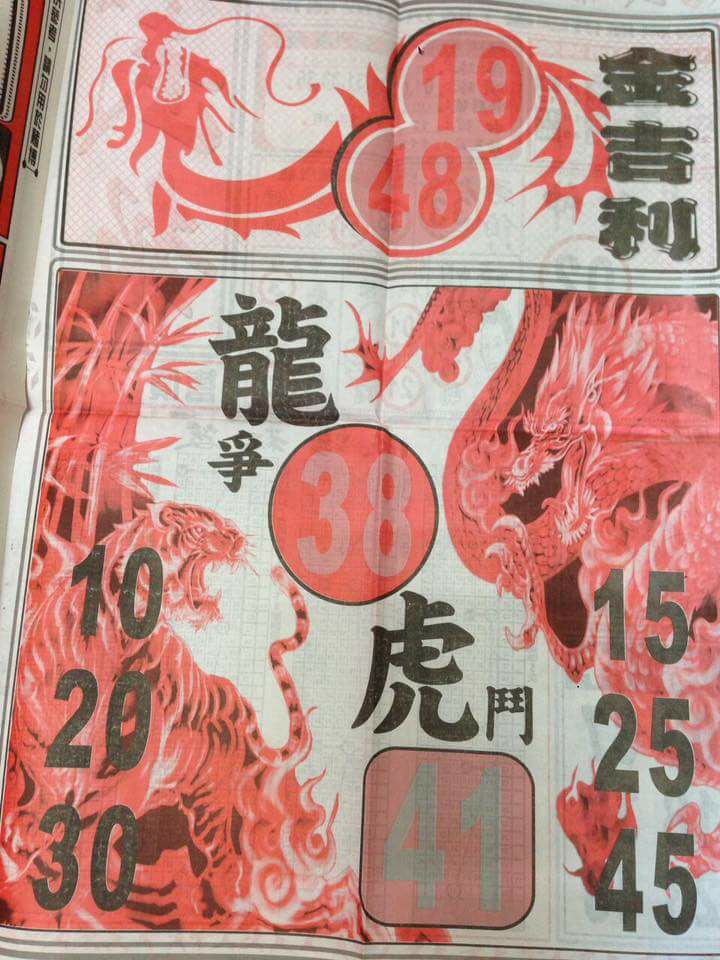 19
48
金吉利
龍
爭
38
虎
鬥
10
20
30
15
25
45
41